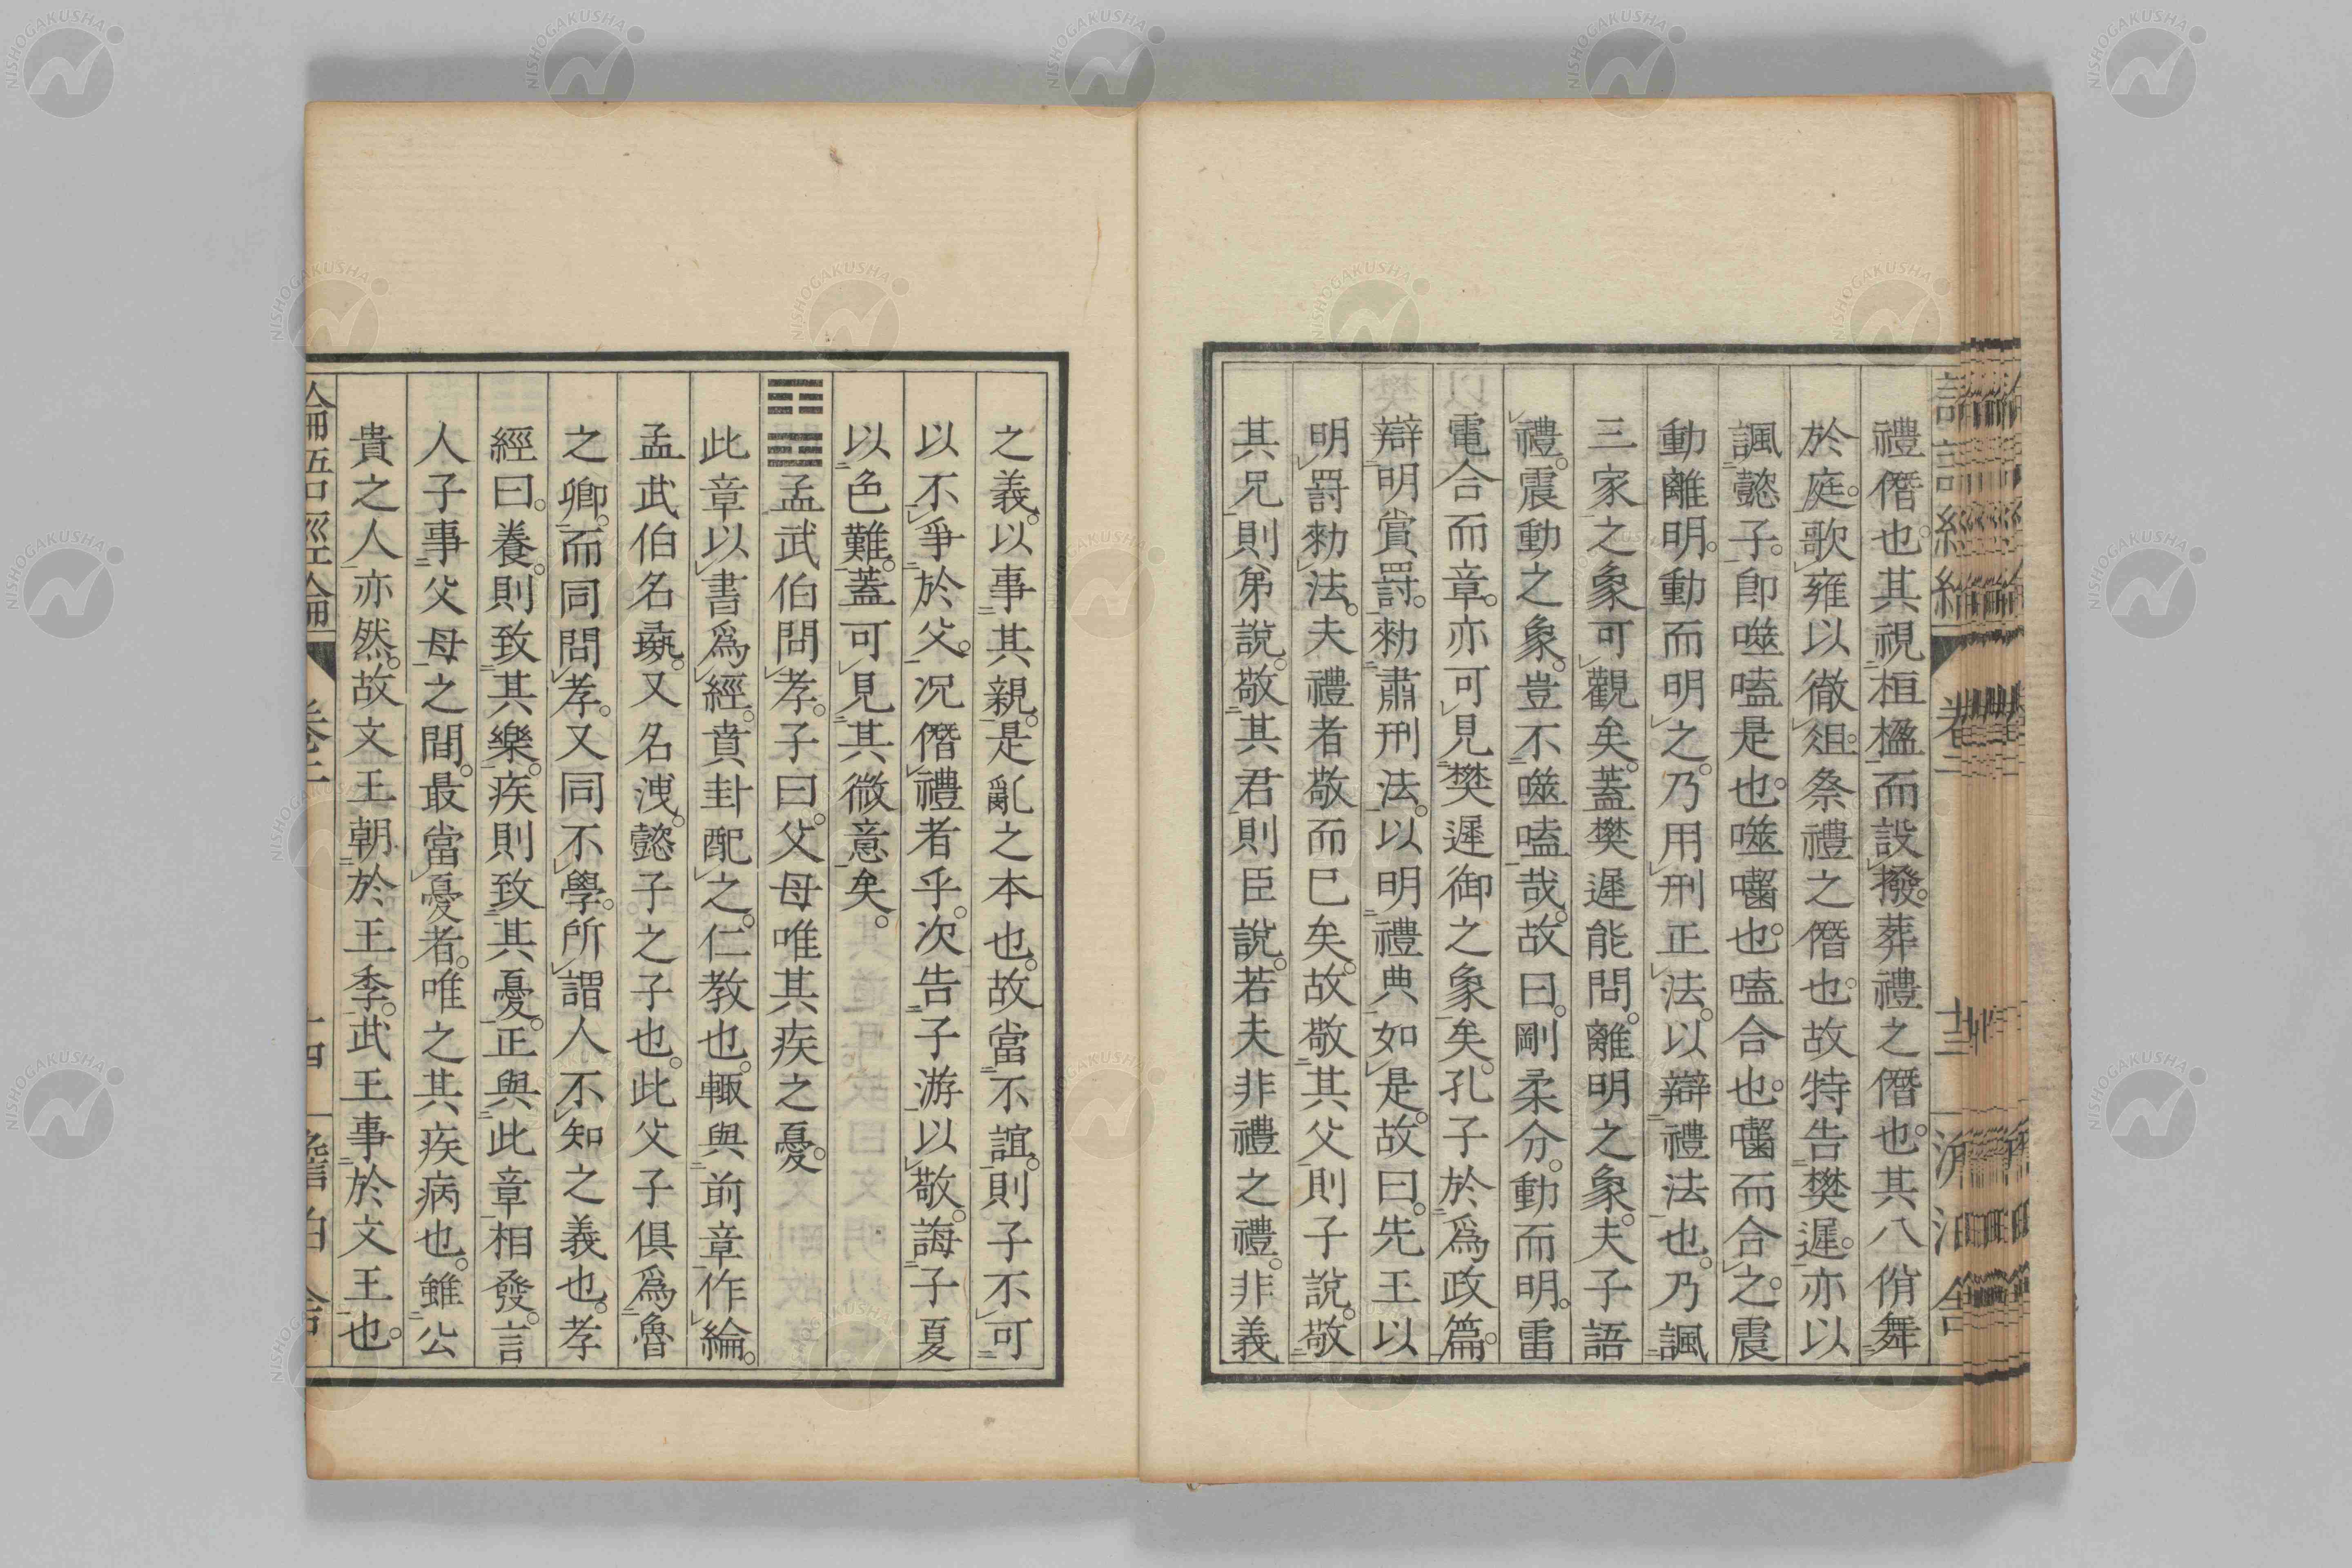 禮僭也。其視桓楹而設撥。葬禮之僭也。其八佾舞
於庭。歌雍以徹。俎祭禮之僭也。故特告樊遲。亦以
諷懿子。卽噬嗑是也。噬囓也。嗑合也。囓而合之。震
動離明。動而明之。乃用刑正法。以辯禮法也。乃諷
三家之象可觀矣。蓋樊遲能問。離明之象。夫子語
禮。震動之象。豈不噬嗑哉。故曰。剛柔分。動而明。雷
電合而章。亦可見樊遲御之象矣。孔子於爲政篇。
辯明賞罸。勑肅刑法。以明禮典如是。故曰。先王以
明罸勑法。夫禮者敬而已矣。故敬其父則子說。敬
其兄則弟說。敬其君則臣說。若夫非禮之禮。非義
之義。以事其親。是亂之本也。故當不誼。則子不可
以不爭於父。况僭禮者乎。次告子游以敬。誨子夏
以色難。蓋可見其微意矣。
孟武伯問孝。子曰。父母唯其疾之憂。
此章以書爲經。賁卦配之。仁教也。輙與前章作綸。
孟武伯名彘。又名洩。懿子之子也。此父子俱爲魯
之卿。而同問孝。又同不學。所謂人不知之義也。孝
經曰。養則致其樂。疾則致其憂。正與此章相發。言
人子事父母之間。最當憂者。唯之其疾病也。雖公
貴之人亦然。故文王朝於王季。武王事於文王也。